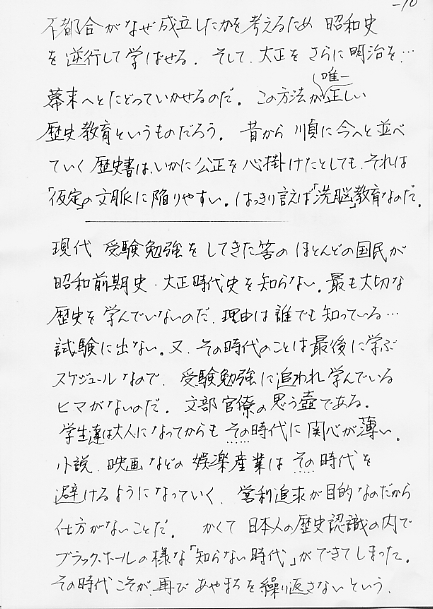 -10
不都合がなぜ成立したかを考えるため 昭和史
を逆行して学ばせる。そして、大正を さらに明治を…
唯一
幕末へとたどっていかせるのだ。この方法が正しい
歴史教育というものだろう。昔から 順に今へと並べ
ていく歴史書は、いかに公正を心掛けたとしても、それは
「仮定」の文脈に陥りやすい。はっきり言えば「洗脳」教育なのだ。
現代 受験勉強をしてきた筈の ほとんどの国民が
昭和前期史・大正時代史を知らない。最も大切な
歴史を 学んでいないのだ。理由は誰でも知っている…
試験に出ない。又、その時代のことは最後に学ぶ
スケジュールなので、受験勉強に追われ学んでいる
ヒマがないのだ。文部官僚の思う壺である。
学生達は大人になってからも その時代に 関心が薄い。
小説、映画などの 娯楽産業は その時代を
避けるようになっていく。営利追求が目的なのだから
仕方がないことだ。かくて 日本人の歴史認識の内で
ブラック・ホールの様な「知らない時代」ができてしまった。
その時代こそが、再び あやまちを繰り返さないという、